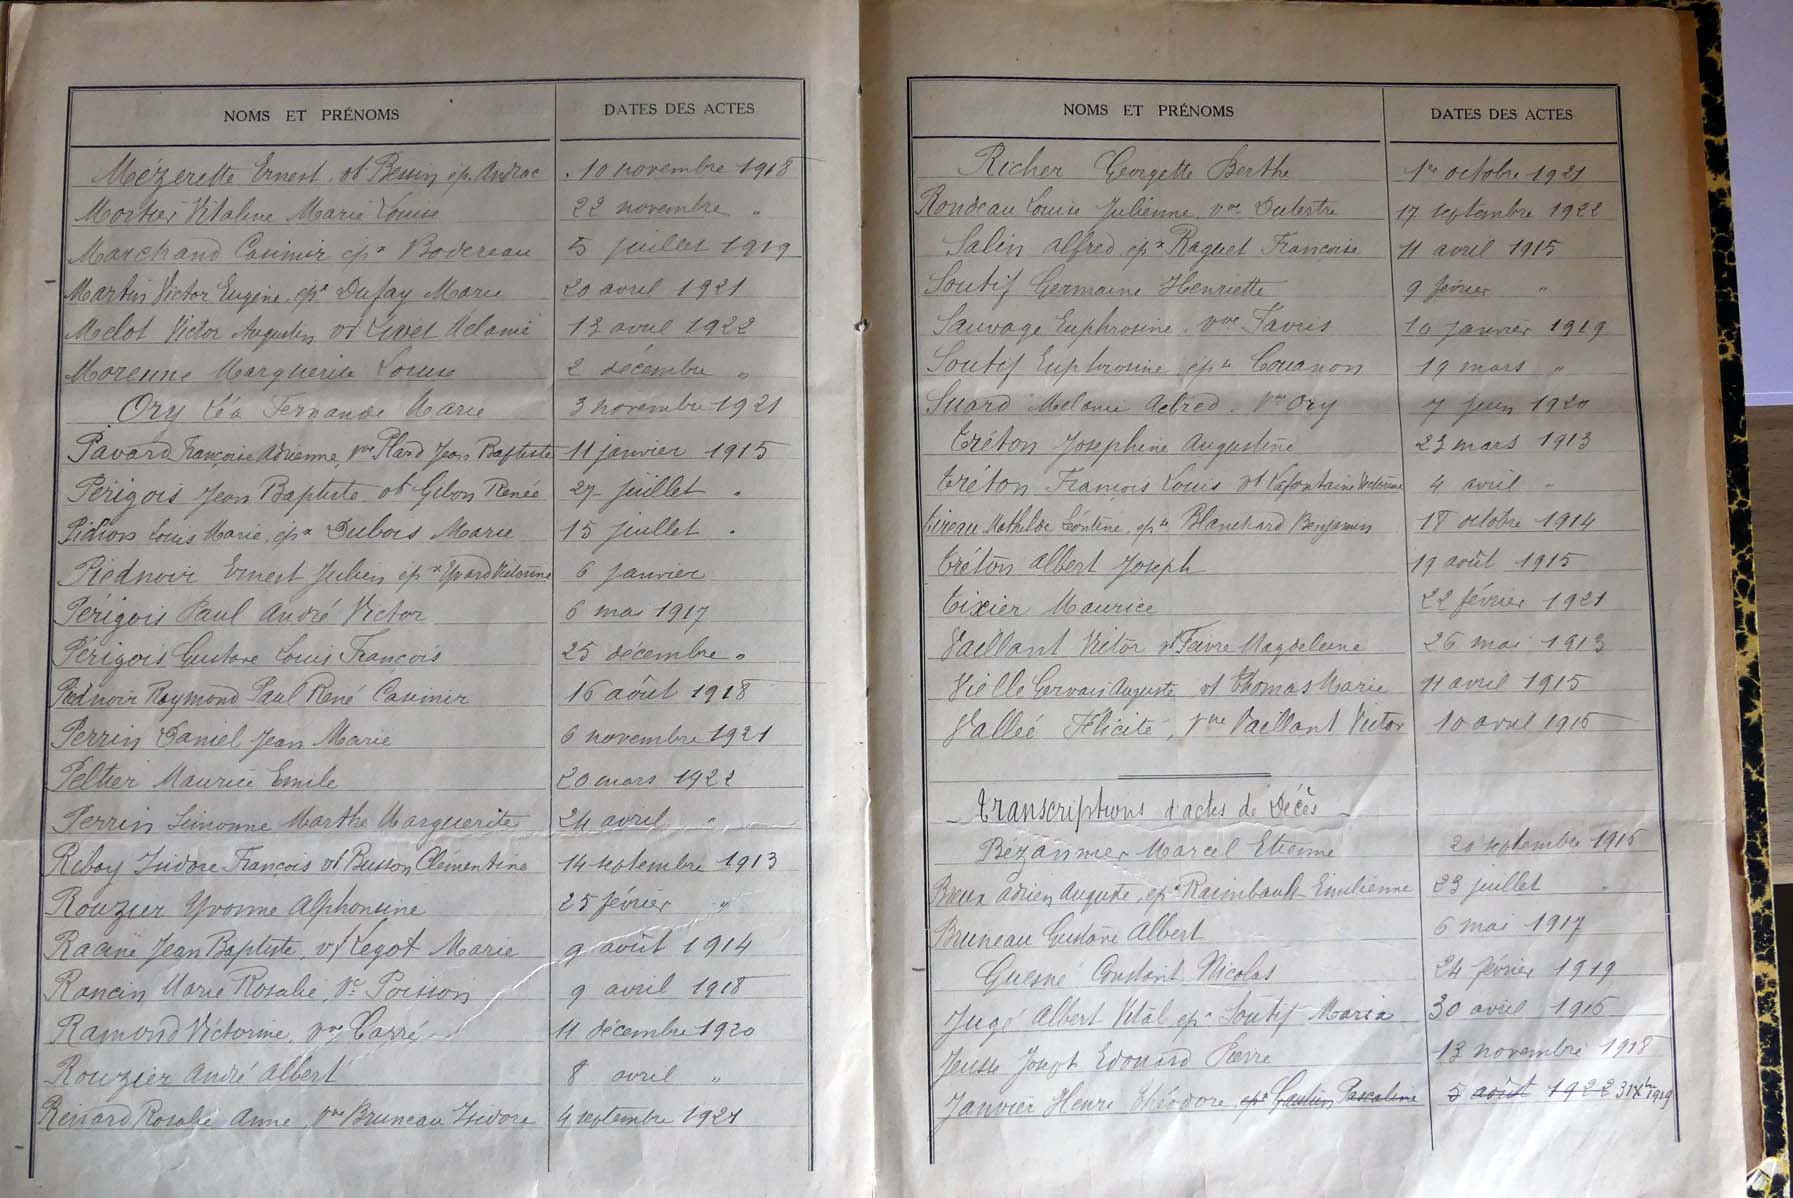 NOMS ET PRÉNOMS DATES DES ACTES
Mézerette Ernest. vf Bessin ép. Andrac 10 novembre 1918
Mortier Vitaline Marie Louise 22 novembre "
Marchand Casimir épx Bodereau 5 juillet 1919
Martin Victor Eugène. épx Dufay Marie 20 avril 1921
Melot Victor Augustin vf Livet Mélanie 13 avril 1922
Morenne Marguerite Louise 2 décembre "
Ory Léa Fernande Marie 3 novembre 1921
Pavard Françoise Adrienne, vve Plard Jean Baptiste 11 janvier 1915
Périgois Jean Baptiste. vf Gibon Renée 27 juillet "
Pidion Louis Marie, épx Dubois Marie 15 juillet "
Piednoir Ernest Julien épx Yvard Victorine 6 janvier
Périgois Paul André Victor 6 mai 1917
Périgois Gustave Louis François 25 décembre "
Piednoir Raymond Paul René Casimir 16 août 1918
Perrin Daniel Jean Marie 6 novembre 1921
Peltier Maurice Emile 20 mars 1922
Perrin Simonne Marthe Marguerite 24 avril "
Riboy Isidore François vf Busson Clémentine 14 septembre 1913
Rouzier Yvonne Alphonsine 25 février "
Racine Jean Baptiste, vf Legot Marie 9 août 1914
Rancin Marie Rosalie, Ve Poisson 9 avril 1918
Ramond Victorine, vve Carré 11 décembre 1920
Rouzier André Albert 8 avril "
Renard Rosalie Anne, vve Bruneau Isidore 4 septembre 1921
NOMS ET PRÉNOMS DATES DES ACTES
Richer Georgette Berthe 1er octobre 1921
Rondeau Louise Julienne. vve Dutertre 17 septembre 1922
Salin Alfred. épx Raguet Françoise 11 avril 1915
Soutif Germaine Henriette 9 février "
Sauvage Euphrosine. vve Favris 10 janvier 1919
Soutif Euphrosine, épse Couanon 19 mars "
Suard Melanie. Vve Ory 7 juin 1920
Tréton Josephine Augustine 23 mars 1913
Tréton François Louis vf Lafontaine Victorine 4 avril "
Mathilde Léontine, épse Blanchard Benjamin 18 octobre 1914
Tréton Albert Joseph 19 août 1915
Tixier Maurice 22 février 1921
Vaillant Victor vf Fèvre Magdeleine 26 mai 1913
Vielle Gervais Auguste vf Thomas Marie 11 avril 1915
Vallée Félicité, Vve Vaillant Victor 10 avril 1916
Transcriptions d'actes de Décès
Bézannier Marcel Etienne 20 septembre 1916
Adrien Auguste, épx Raimbault Emilienne 23 juillet "
Bruneau Gustave Albert 6 mai 1917
Guesné Constant Nicolas 24 février 1919
Jugé Albert Vital épx Soutif Maria 30 avril 1916
Joseph Edouard Pierre 13 novembre 1918
Janvier Henri Théodore, épx Gautier Pascaline 5 août 1922 31 Xbre 1919